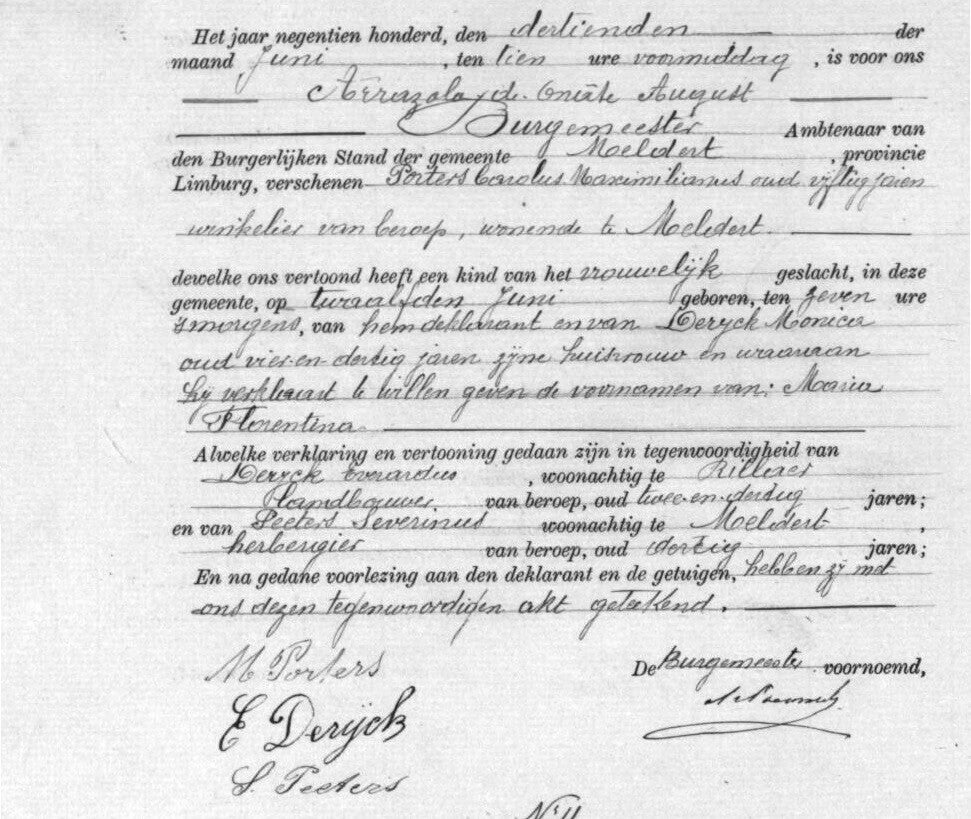 Het jaar negentien honderd, den dertienden der
maand Juni, ten tien ure voormiddag, is voor ons
Arrazola de Oniate August
Burgemeester Ambtenaar van
den Burgerlijken Stand der gemeente Meldert, provincie
Limburg, verschenen Porters Carolus Maximilianus oud vijftig jaren
winkelier van beroep, wonende te Meldert.
dewelke ons vertoond heeft een kind van het vrouwelijk geslacht, in deze
gemeente, op twaalfden Juni geboren, ten zeven ure
smorgens, van hem deklarant en van Deryck Monica
oud vier-en-dertig jaren zijne huisvrouw en waaraan
hij verklaart te willen geven de voornamen van: Maria
Florentina
Alwelke verklaring en vertooning gedaan zijn in tegenwoordigheid van
Deryck Everardus, woonachtig te Rillaer
Landbouwer van beroep, oud twee-en-dertig jaren;
en van Peeters Severinus woonachtig te Meldert,
herbergier van beroep, oud dertig jaren;
En na gedane voorlezing aan den deklarant en de getuigen, hebben zij met
ons dezen tegenwoordigen akt geteekend.
M Porters
De Burgemeester voornoemd,
E Derijck
S. Peeters
N° 11